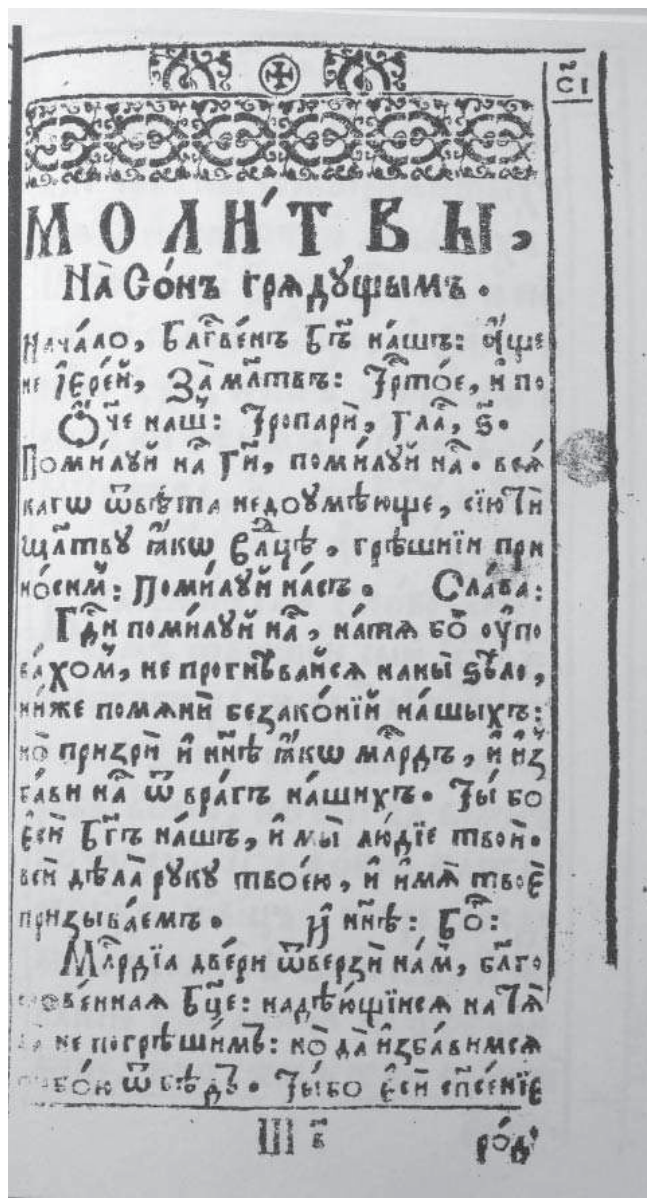 с҃і
МОЛИ́ТВЫ,
На̀ Со́нъ грѧдꙋ́щымъ.
Нача́ло, Блгⷭ҇ве́нъ Бг҃ъ на́шъ: а҆́ще
не і҆ере́й, За̀ мл҃твъ: Трⷭ҇то́е, и҆ по
Ѻ҆́ч҃е на́шъ: Тропарѝ, гла́съ, ѕ҃.
Поми́лꙋй на́съ гдⷭ҇и, поми́лꙋй на́съ. всѧ́
кагѡ ѿвѣ́та недоꙋмѣ́юще, сїю́ Тѝ
мл҃твꙋ ꙗ҆́кѡ влⷣцѣ, грѣ́шнїи при
но́симъ: Поми́лꙋй на́съ. Сла́ва:
Гдⷭ҇и поми́лꙋй на́съ, на́тѧ бо̀ оу҆по
ва́хомъ, не прогнѣ́вайсѧ наны̀ ѕѣлѡ̀,
ни́же помѧнѝ беззако́нїй на́шыхъ:
но̀ призрѝ и҆ нн҃ѣ ꙗ҆́кѡ млⷭ҇рдъ, и҆ и҆з
ба́ви на́съ ѿ вра́гъ на́шихъ. Ты́ бо
є҆сѝ Бг҃ъ на́шъ, и҆ мы̀ лю́дїе твоѝ.
всѝ дѣла̀ рꙋкꙋ̀ твоє́ю, и҆ и҆́мѧ твоѐ
призыва́емъ. И҆ нн҃ѣ: Бо́:
Млⷭ҇рдїѧ две́ри ѿве́рзи на́мъ, бл҃го
слове́ннаѧ Бц҃е: надѣ́ющїисѧ на Тѧ̀
да̀ не погрѣши́мъ: но̀ да̀ и҆зба́вимсѧ
тобо́ю ѿ бѣ́дъ. Ты́ бо є҆сѝ сп҃се́нїе
Ш в҃ ро́дꙋ